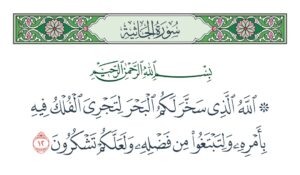 سُورَةُ الجَاثِيَةِ
بِسْمِ ٱللَّهِ ٱلرَّحْمَٰنِ ٱلرَّحِيمِ
۞ ٱللَّهُ ٱلَّذِى سَخَّرَ لَكُمُ ٱلْبَحْرَ لِتَجْرِىَ ٱلْفُلْكُ فِيهِ
بِأَمْرِهِۦ وَلِتَبْتَغُوا۟ مِن فَضْلِهِۦ وَلَعَلَّكُمْ تَشْكُرُونَ ١٢